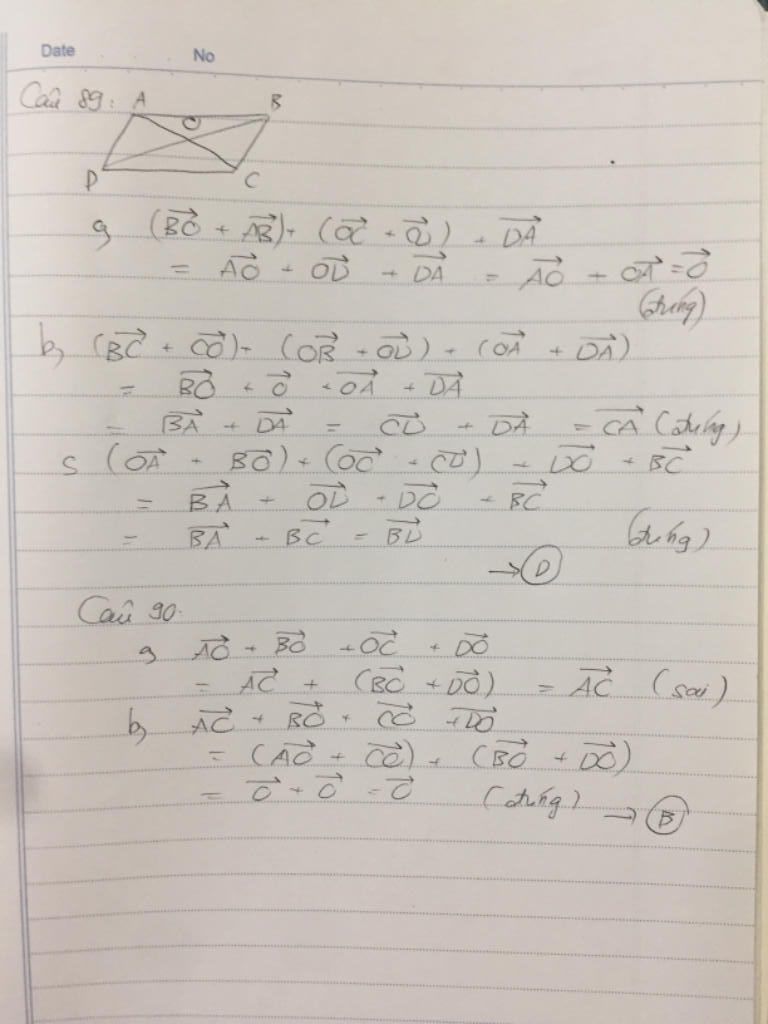 Date No
Câu 89: A B
O
D C
a, (BO→ + AB→) + (OC→ + CD→) + DA→
= AO→ + OD→ + DA→ = AO→ + OA→ = O→
(đúng)
b, (BC→ + CO→) + (OB→ + OD→) + (OA→ + DA→)
= BO→ + O→ + OA→ + DA→
= BA→ + DA→ = CD→ + DA→ = CA→ (đúng)
c (OA→ + BO→) + (OC→ + CD→) + DO→ + BC→
= BA→ + OD→ + DO→ + BC→
= BA→ + BC→ = BD→ (đúng)
→ D
Câu 90.
a, AO→ + BO→ + OC→ + DO→
= AC→ + (BO→ + DO→) = AC→ (sai)
b, AO→ + BO→ + CO→ + DO→
= (AO→ + CO→) + (BO→ + DO→)
= O→ + O→ = O→ (đúng) → B